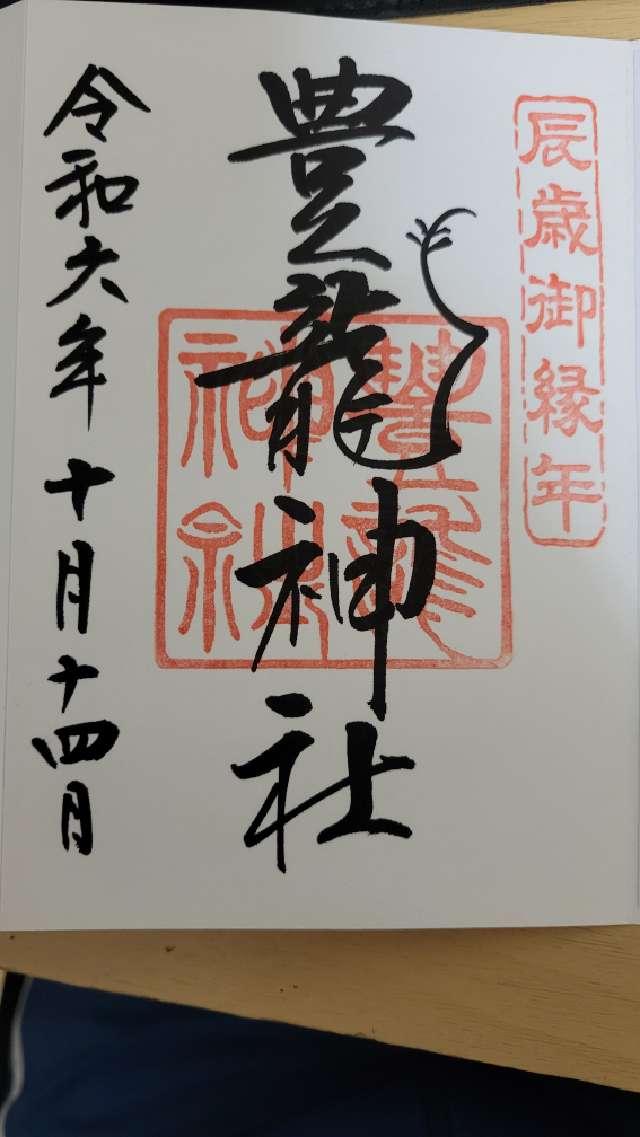 辰歳御縁年
豊龍神社
豊龍神社
令和六年十月十四月